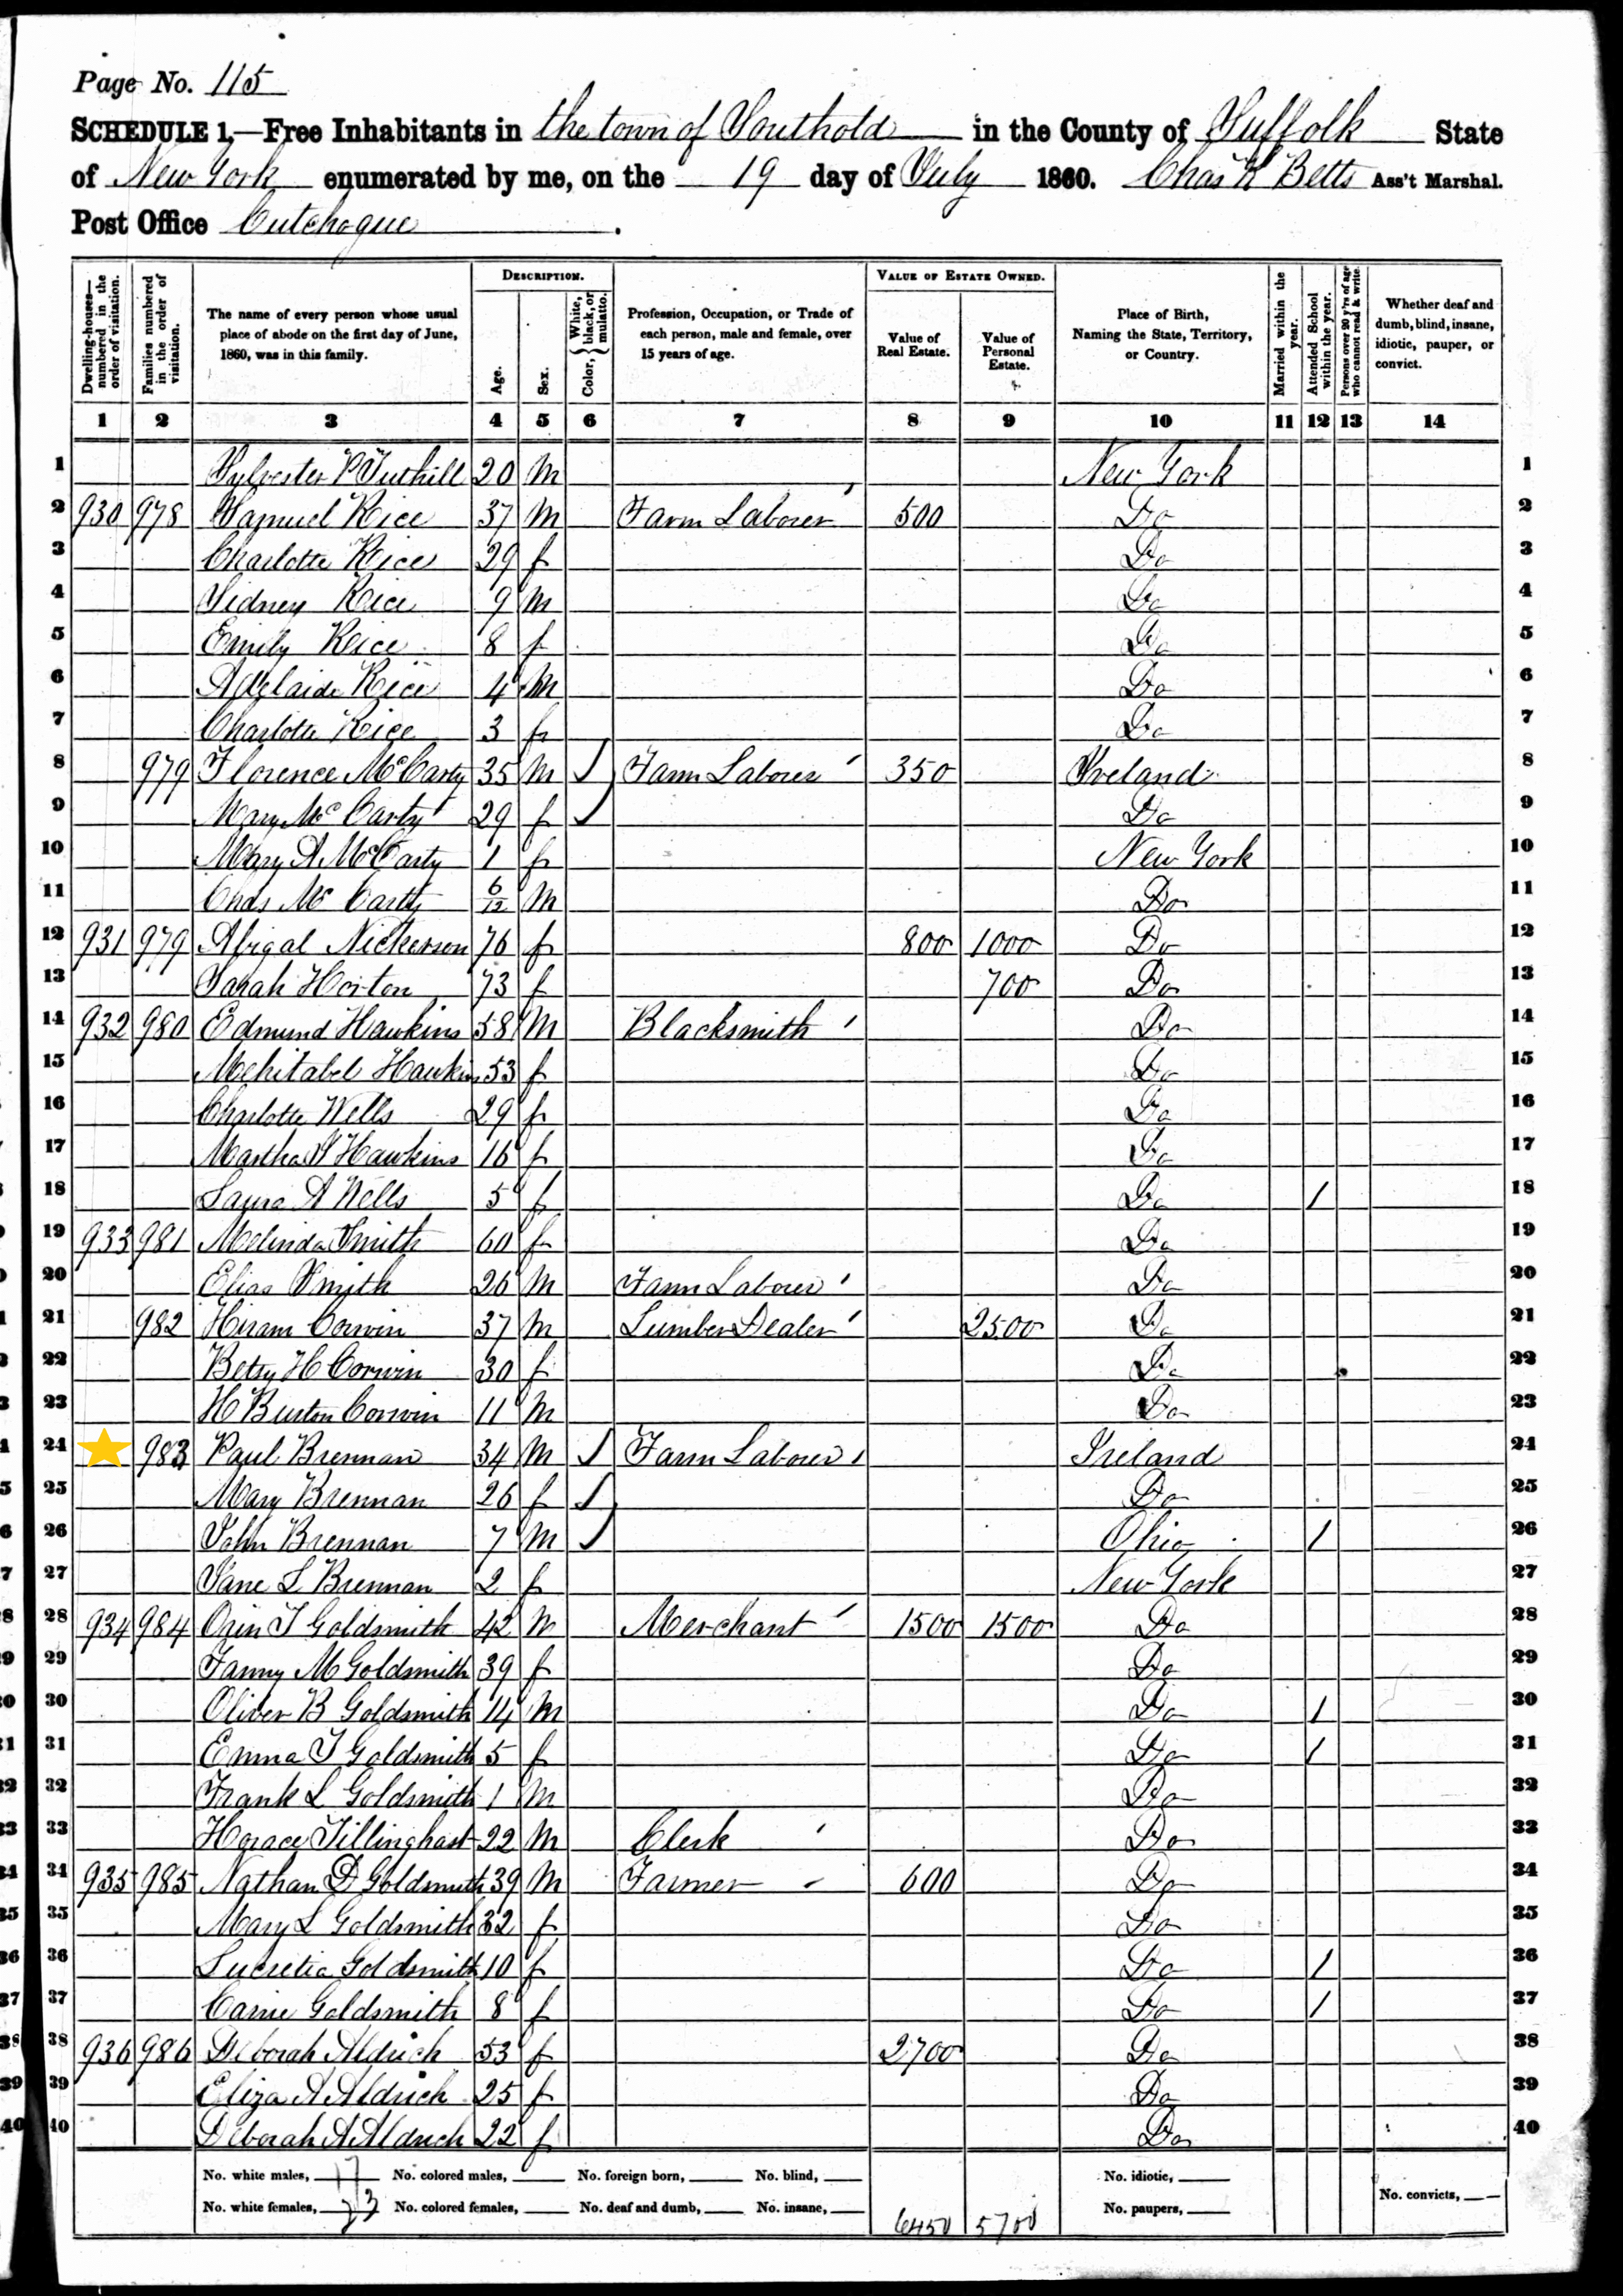 Page No. 115
SCHEDULE 1.—Free Inhabitants in the town of Southold in the County of Suffolk State
of New York enumerated by me, on the 19 day of July 1860. Chas K Betts Ass't Marshal.
Post Office Cutchogue.
Dwelling-houses—numbered in the order of visitation. Families numbered in the order of visitation. The name of every person whose usual place of abode on the first day of June, 1860, was in this family. DESCRIPTION. Age. Sex. Color, {White, black, or mulatto. Profession, Occupation, or Trade of each person, male and female, over 15 years of age. VALUE OF ESTATE OWNED. Value of Real Estate. Value of Personal Estate. Place of Birth, Naming the State, Territory, or Country. Married within the year. Attended School within the year. Persons over 20 y'rs of age who cannot read & write. Whether deaf and dumb, blind, insane, idiotic, pauper, or convict.
1 2 3 4 5 6 7 8 9 10 11 12 13 14
1 Sylvester P Tuthill 20 m New York 1
2 930 978 Samuel Rice 37 m Farm Laborer 500 Do 2
3 Charlotte Rice 29 f Do 3
4 Sidney Rice 9 m Do 4
5 Emily Rice 8 f Do 5
6 Adelaide Rice 4 m Do 6
7 Charlotte Rice 3 f Do 7
8 979 Florence McCarty 35 m Farm Laborer 350 Ireland 8
9 Mary McCarty 29 f Do 9
10 Mary A McCarty 1 f New York 10
11 Chas McCarty 6/12 m Do 11
12 931 979 Abigal Nickerson 76 f 800 1000 Do 12
13 Sarah Horton 73 f 700 Do 13
14 932 980 Edmund Hawkins 58 m Blacksmith Do 14
15 Mehitabel Hawkins 53 f Do 15
16 Charlotte Wells 29 f Do 16
17 Martha J Hawkins 16 f Do 17
18 Laura A Wells 5 f Do / 18
19 933 981 Melinda Smith 60 f Do 19
20 Elias Smith 26 m Farm Laborer Do 20
21 982 Hiram Corwin 37 m Lumber Dealer 2500 Do 21
22 Betsy H Corwin 30 f Do 22
23 H Burton Corwin 11 m Do 23
24 983 Paul Brennan 34 m Farm Laborer Ireland 24
25 Mary Brennan 26 f Do 25
26 John Brennan 7 m Ohio / 26
27 Jane L Brennan 2 f New York 27
28 934 984 Orin T Goldsmith 42 m Merchant 1500 1500 Do 28
29 Fanny M Goldsmith 39 f Do 29
30 Oliver B Goldsmith 14 m Do / 30
31 Emma T Goldsmith 5 f Do / 31
32 Frank L Goldsmith 1 m Do 32
33 Horace Tillinghast 22 m Clerk Do 33
34 935 985 Nathan D Goldsmith 39 m Farmer 600 Do 34
35 Mary L Goldsmith 32 f Do 35
36 Lucretia Goldsmith 10 f Do / 36
37 Carrie Goldsmith 8 f Do / 37
38 936 986 Deborah Aldrich 53 f 2700 Do 38
39 Eliza A Aldrich 25 f Do 39
40 Deborah A Aldrich 22 f Do 40
No. white males, 17 No. colored males, No. foreign born, No. blind, No. idiotic,
No. white females, 23 No. colored females, No. deaf and dumb, No. insane, 6450 5700 No. paupers, No. convicts,